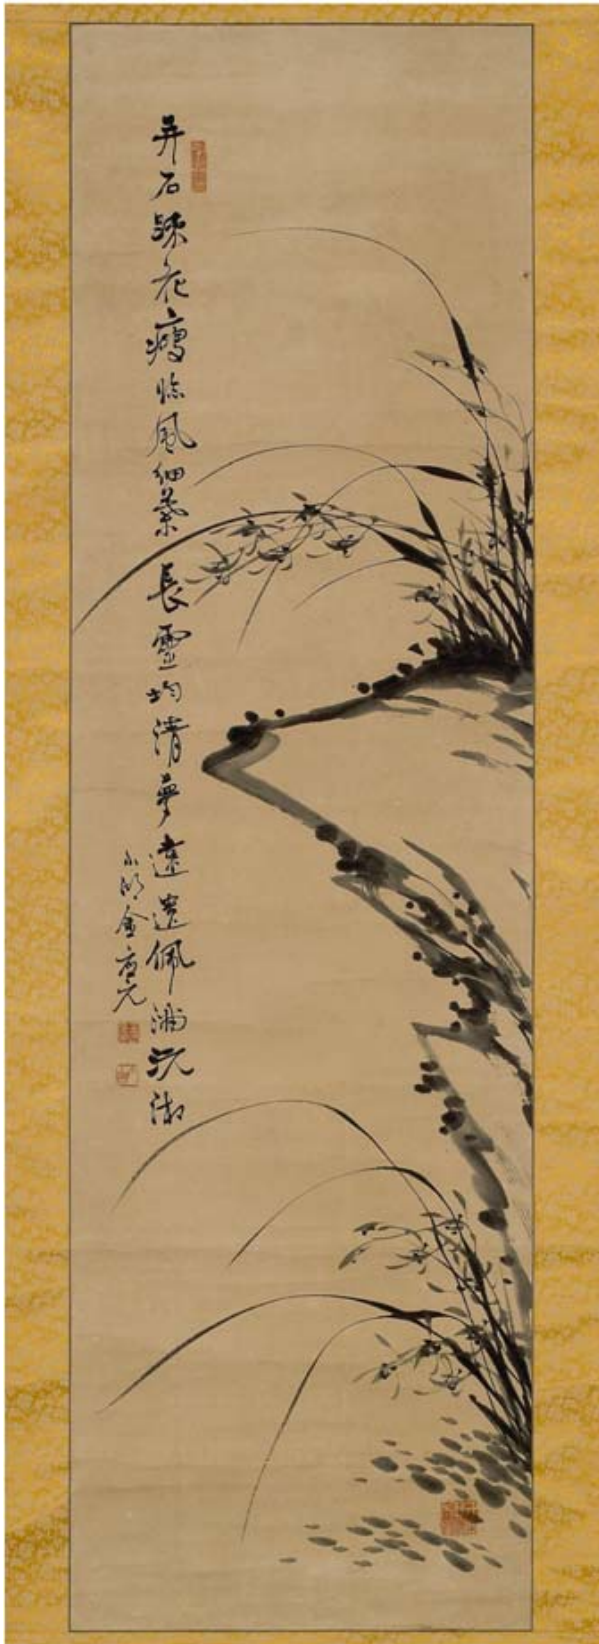 并石疎花瘦臨風細葉長靈均清夢遠遺佩滿沅湘
小湖金應元